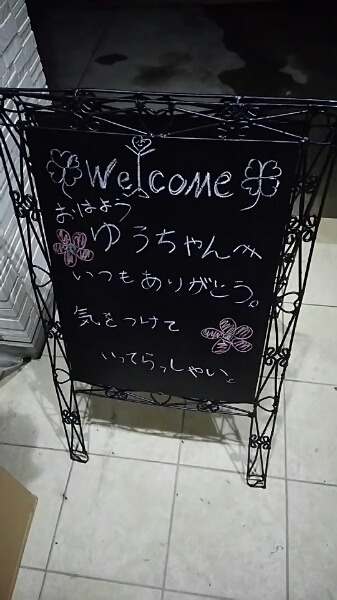 Welcome
おはよう
ゆうちゃん
いつもありがとう。
気をつけて
いってらっしゃい。